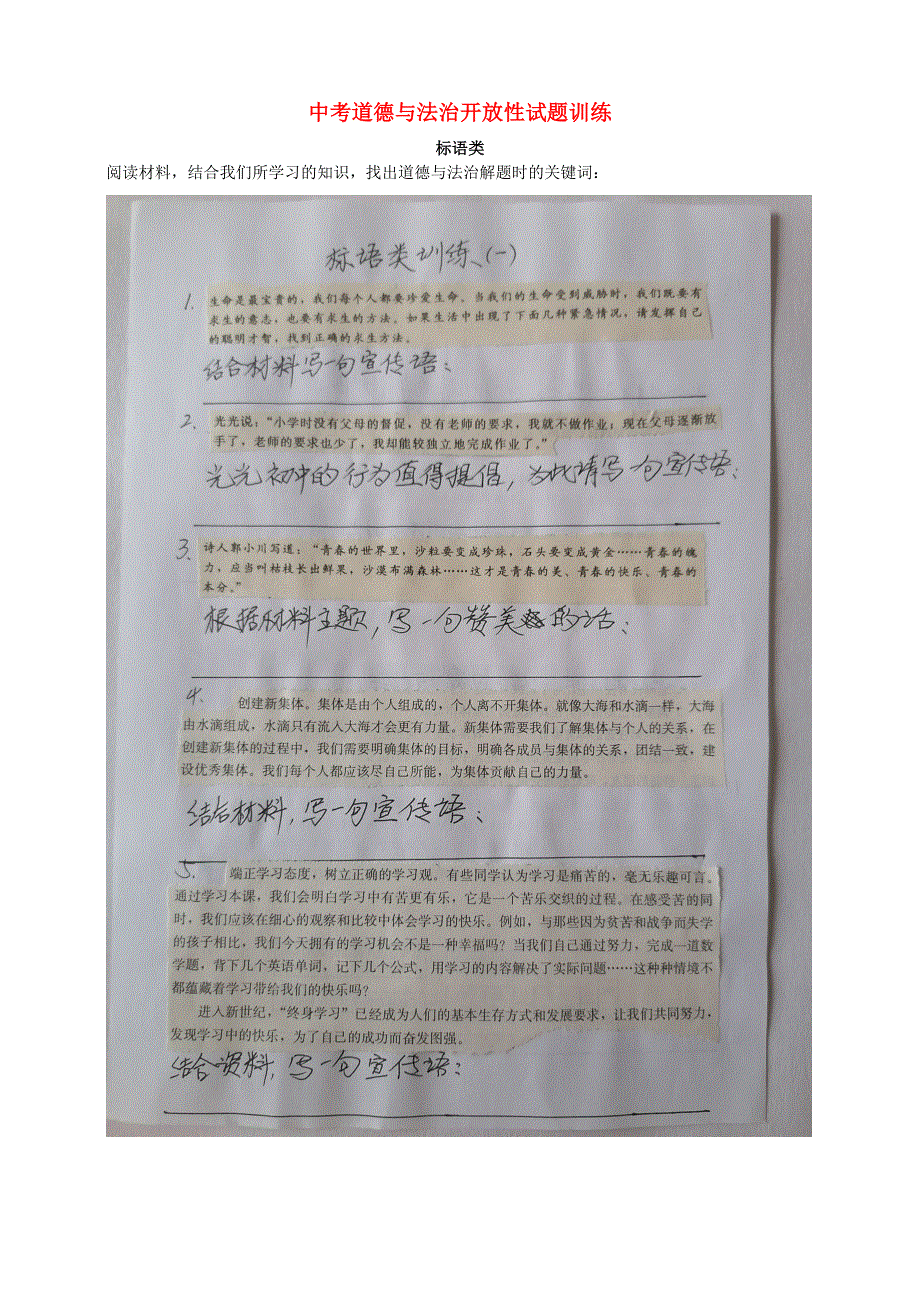 中考道德与法治开放性试题训练
标语类
阅读材料，结合我们所学习的知识，找出道德与法治解题时的关键词：
标语类训练(一)
1. 生命是最宝贵的，我们每个人都要珍爱生命。当我们的生命受到威胁时，我们既要有
求生的意志，也要有求生的方法。如果生活中出现了下面几种紧急情况，请发挥自己
的聪明才智，找到正确的求生方法。
结合材料写一句宣传语：
2、光光说：“小学时没有父母的督促，没有老师的要求，我就不做作业；现在父母逐渐放
手了，老师的要求也少了，我却能较独立地完成作业了。”
光光初中的行为值得提倡，为此请写一句宣传语：
3、诗人郭小川写道：“青春的世界里，沙粒要变成珍珠，石头要变成黄金……青春的魄
力，应当叫枯枝长出鲜果，沙漠布满森林……这才是青春的美、青春的快乐、青春的
本分。”
根据材料主题，写一句赞美的话：
4. 创建新集体。集体是由个人组成的，个人离不开集体。就像大海和水滴一样，大海
由水滴组成，水滴只有流入大海才会更有力量。新集体需要我们了解集体与个人的关系，在
创建新集体的过程中，我们需要明确集体的目标，明确各成员与集体的关系，团结一致，建
设优秀集体。我们每个人都应该尽自己所能，为集体贡献自己的力量。
结合材料，写一句宣传语：
5. 端正学习态度，树立正确的学习观。有些同学认为学习是痛苦的，毫无乐趣可言。
通过学习本课，我们会明白学习中有苦更有乐，它是一个苦乐交织的过程。在感受苦的同
时，我们应该在细心的观察和比较中体会学习的快乐。例如，与那些因为贫苦和战争而失学
的孩子相比，我们今天拥有的学习机会不是一种幸福吗？当我们自己通过努力，完成一道数
学题，背下几个英语单词，记下几个公式，用学习的内容解决了实际问题……这种种情境不
都蕴藏着学习带给我们的快乐吗？
进入新世纪，“终身学习”已经成为人们的基本生存方式和发展要求，让我们共同努力，
发现学习中的快乐，为了自己的成功而奋发图强。
结合资料，写一句宣传语：